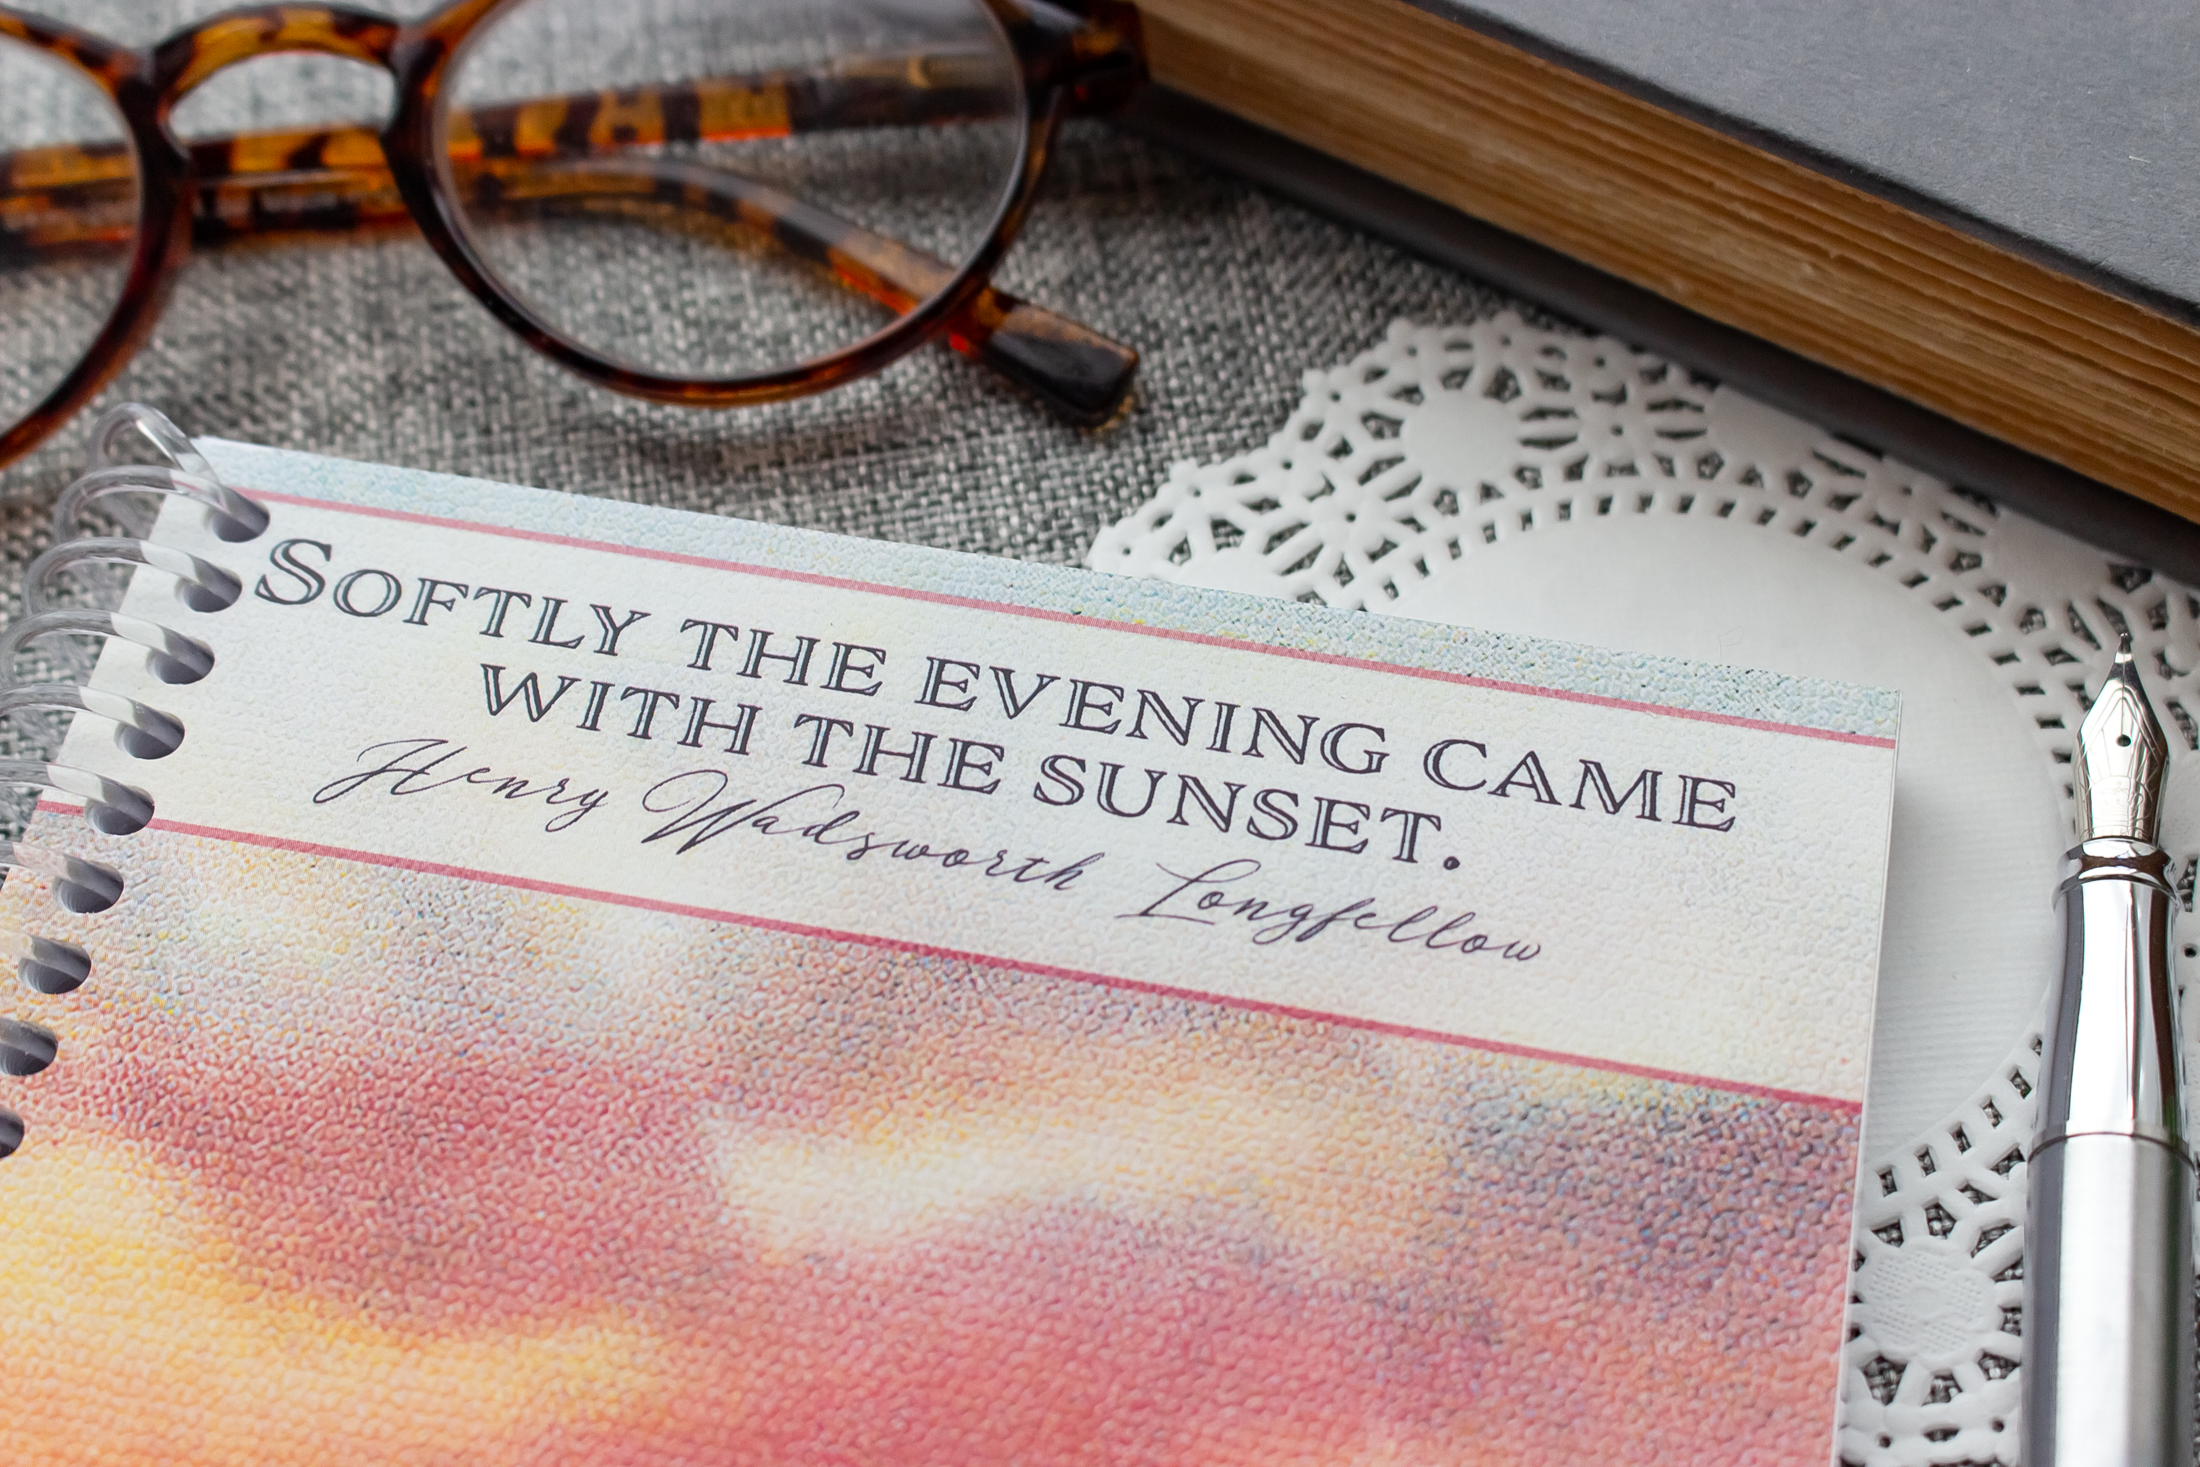 Softly the evening came
with the sunset.
Henry Wadsworth Longfellow